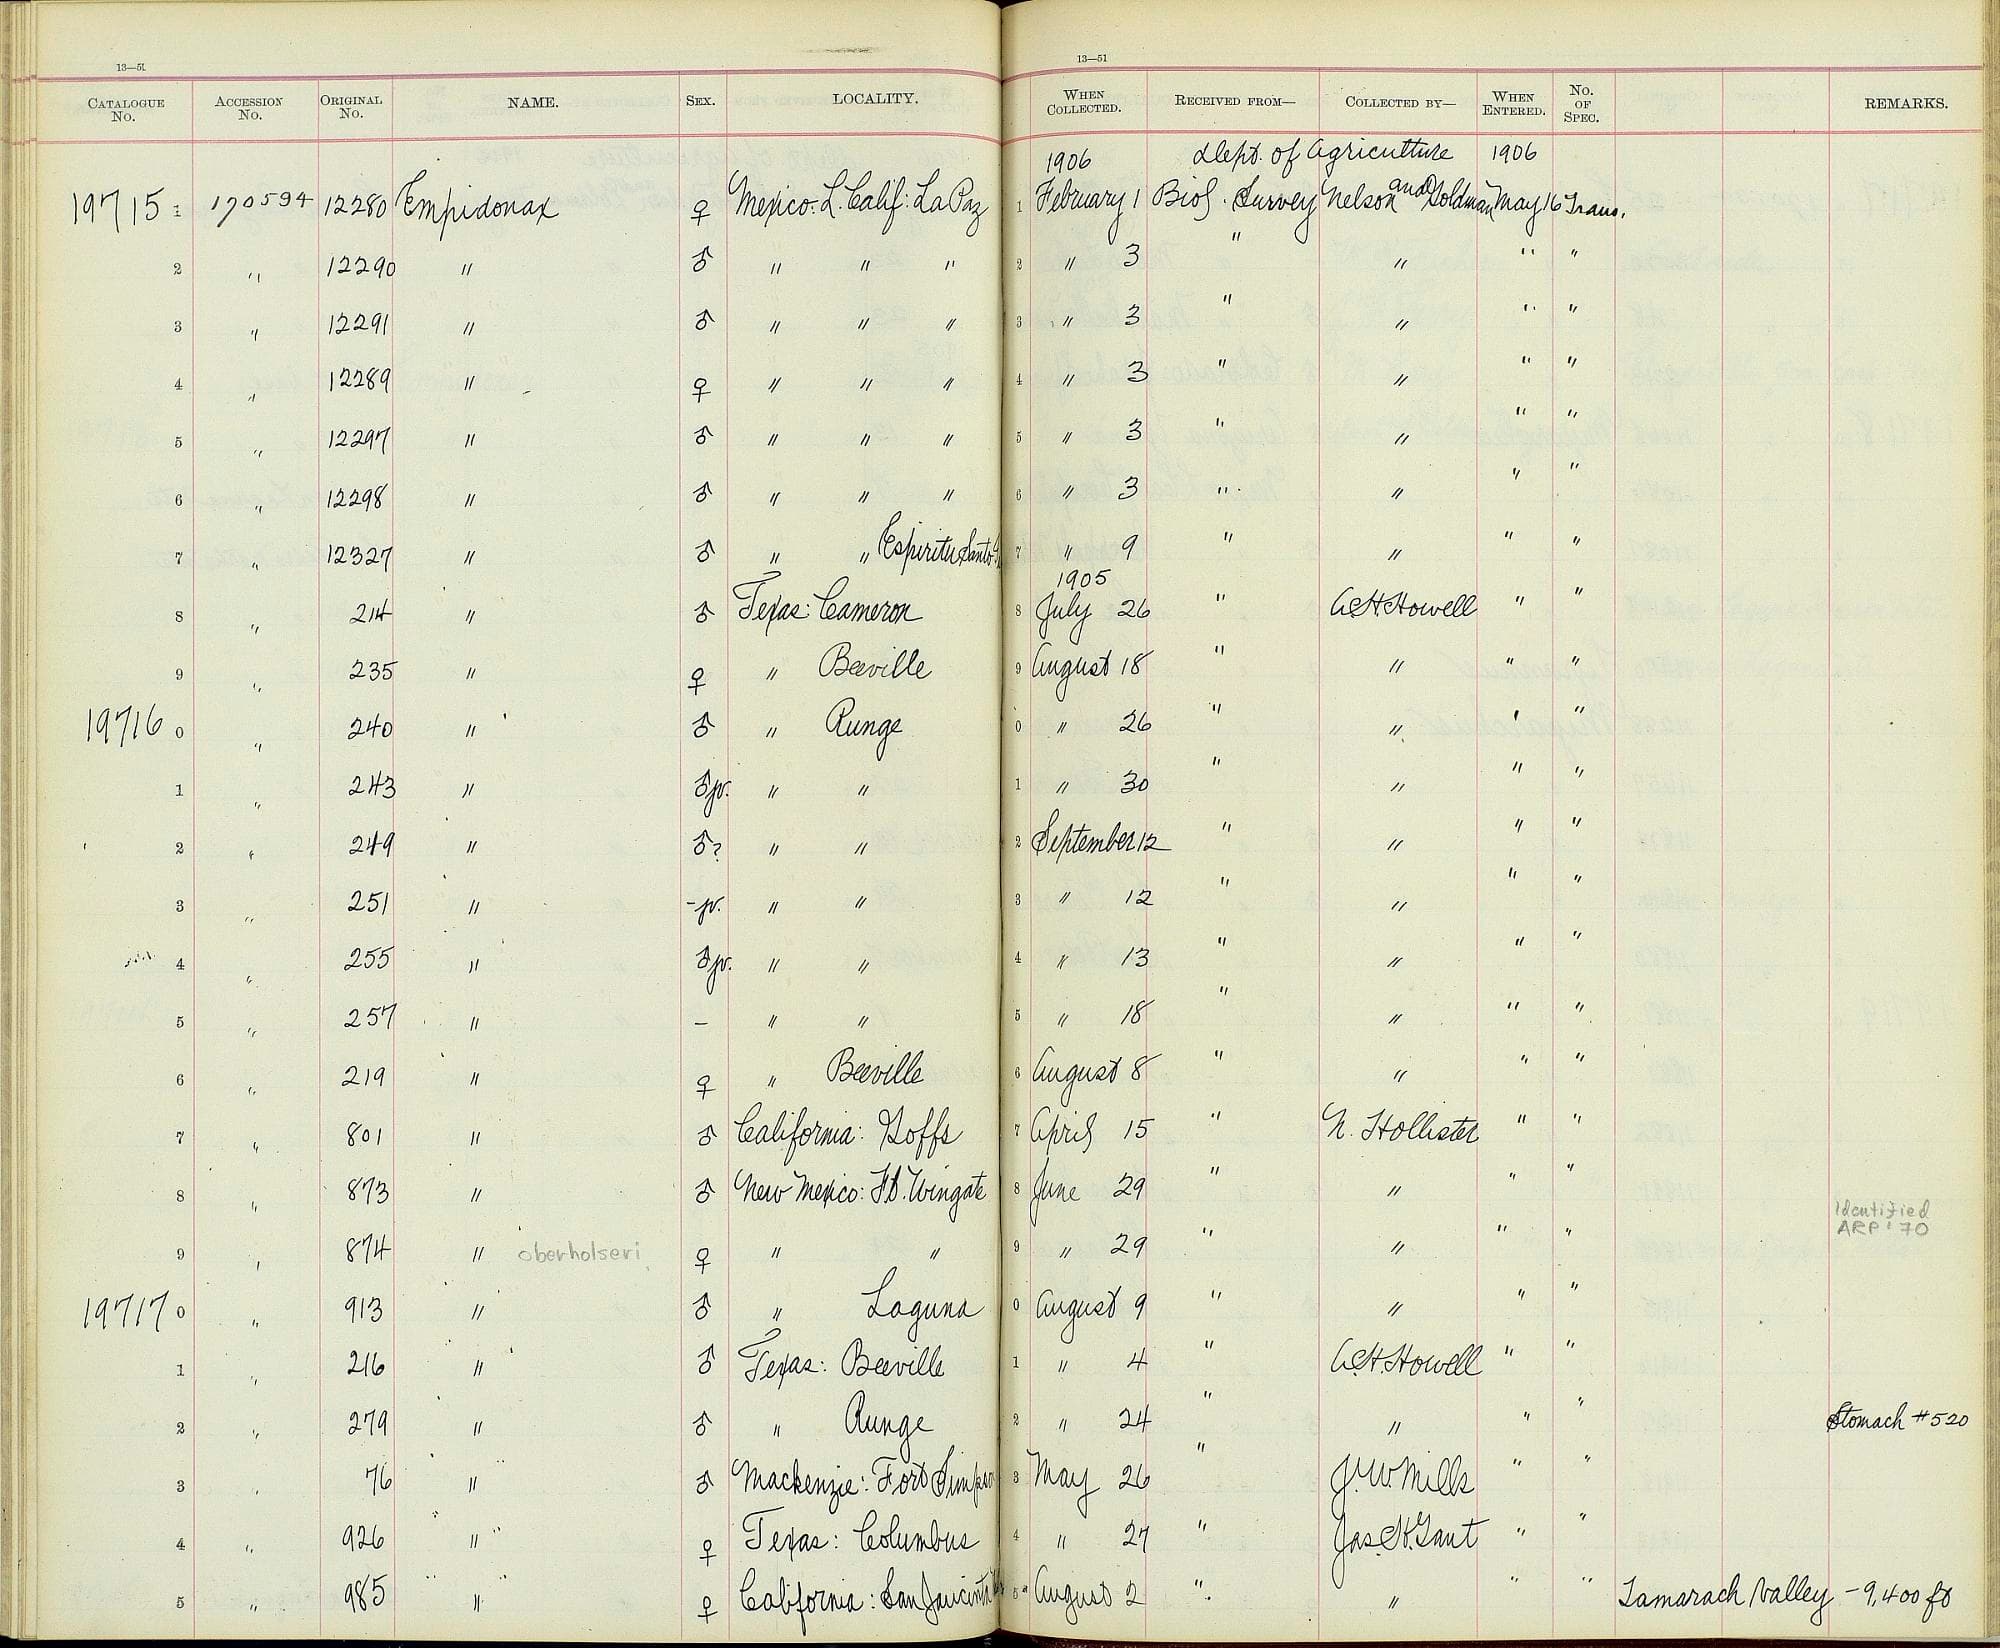 13—51
CATALOGUE No. ACCESSION No. ORIGINAL No. NAME. SEX. LOCALITY.
13—51
WHEN COLLECTED. RECEIVED FROM— COLLECTED BY— WHEN ENTERED. No. OF SPEC. REMARKS.
1906 Dept. of Agriculture 1906
19715 1 170594 12280 Empidonax ♀ Mexico: L. Calif: La Paz 1 February 1 Biol. Survey Nelson and Goldman May 16 Trans.
2 " 12290 " ♂ " " " 2 " 3 " " " "
3 " 12291 " ♂ " " " 3 " 3 " " " "
4 " 12289 " ♀ " " " 4 " 3 " " " "
5 " 12297 " ♂ " " " 5 " 3 " " " "
6 " 12298 " ♂ " " " 6 " 3 " " " "
7 " 12327 " ♂ " " Espiritu Santo 7 " 9 " " " "
1905
8 " 214 " ♂ Texas: Cameron 8 July 26 " A H Howell " "
9 " 235 " ♀ " Beeville 9 August 18 " " " "
19716 0 " 240 " ♂ " Runge 0 " 26 " " " "
1 " 243 " ♂ jv. " " 1 " 30 " " " "
2 " 249 " ♂? " " 2 September 12 " " " "
3 " 251 " - jv. " " 3 " 12 " " " "
4 " 255 " ♂ jv. " " 4 " 13 " " " "
5 " 257 " - " " 5 " 18 " " " "
6 " 219 " ♀ " Beeville 6 August 8 " " " "
7 " 801 " ♂ California: Goffs 7 April 15 " N. Hollister " "
8 " 873 " ♂ New Mexico: Ft. Wingate 8 June 29 " " " "
Identified
ARP '70
9 " 874 " oberholseri ♀ " " 9 " 29 " " " "
19717 0 " 913 " ♂ " Laguna 0 August 9 " " " "
1 " 216 " ♂ Texas: Beeville 1 " 4 " A. H. Howell " "
2 " 279 " ♂ " Runge 2 " 24 " " " " Stomach # 520
3 " 76 " ♂ Mackenzie: Fort Simpson 3 May 26 " J. W. Mills " "
4 " 926 " ♀ Texas: Columbus 4 " 27 " Jas. H. Gaut " "
5 " 985 " ♀ California: San Jacinto 5 August 2 " " " " Tamarach Valley - 9,400 ft